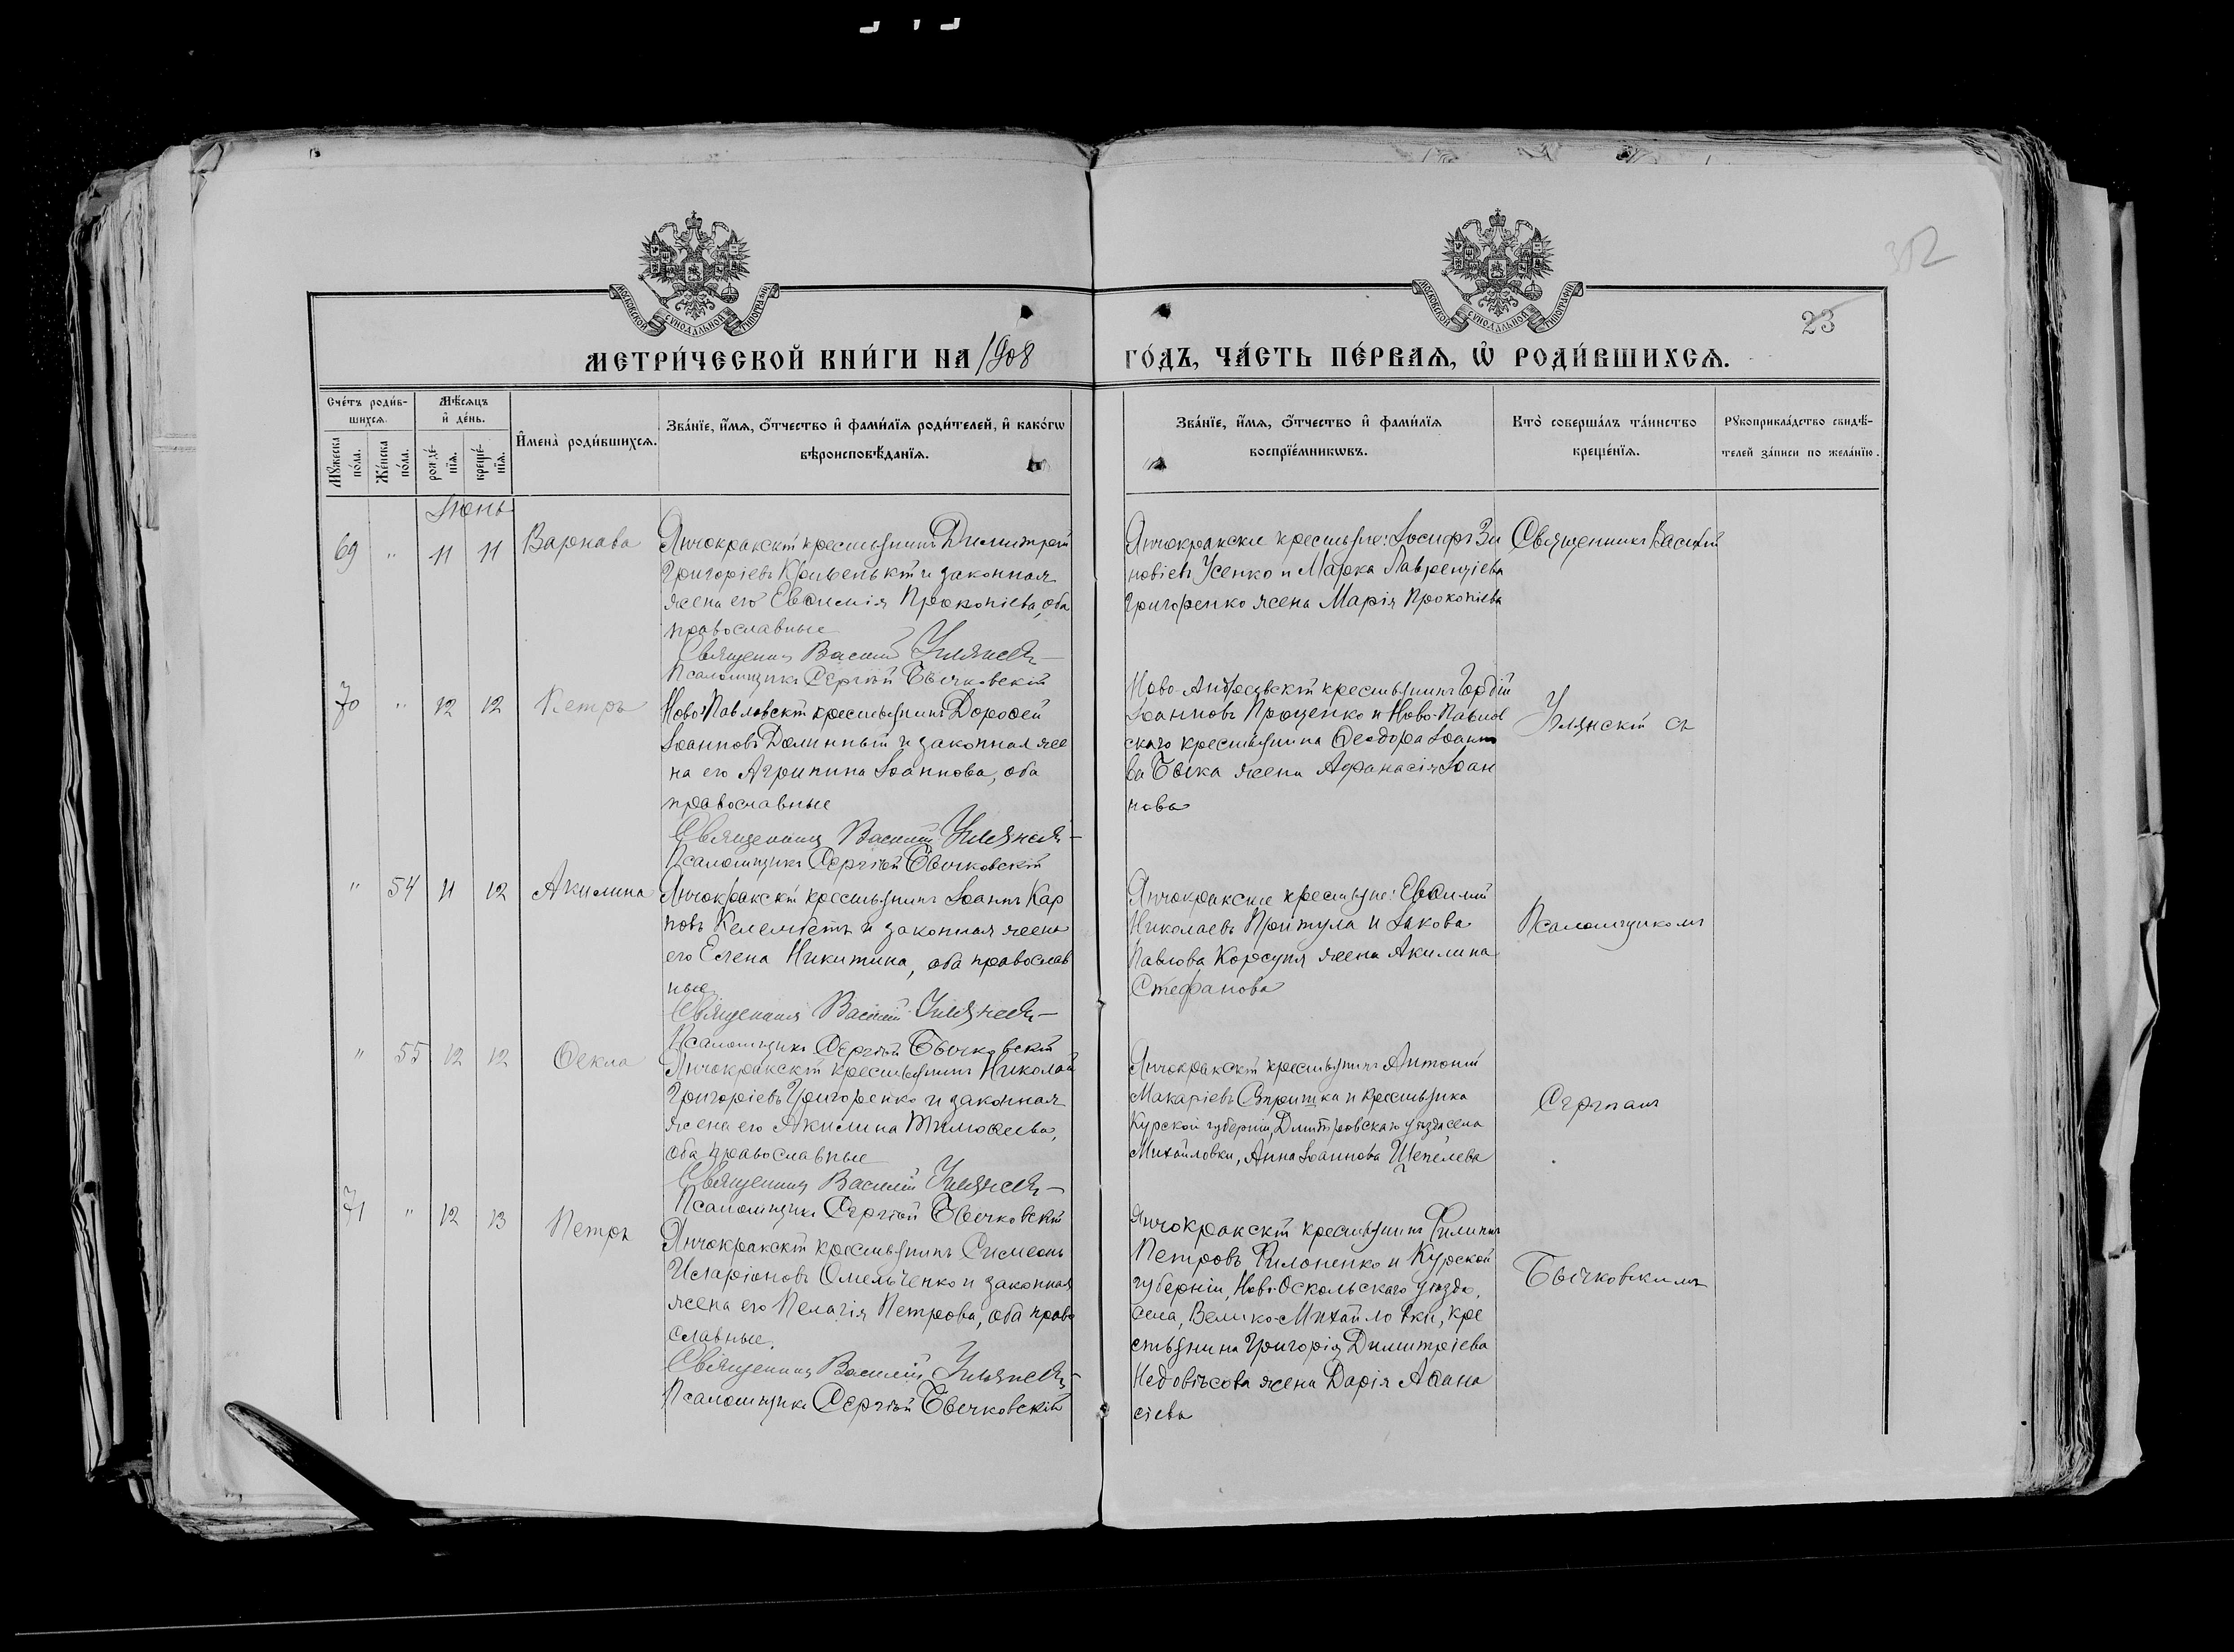 352
23
МОСКОВСКОЙ СѴНОДАЛЬНОЙ ТИПОГРАФІИ
МОСКОВСКОЙ СѴНОДАЛЬНОЙ ТИПОГРАФІИ
МЕТРИ́ЧЕСКОЙ КНИ́ГИ НА 1908
ГО́ДЪ, ЧА́СТЬ ПЕ́РВАѦ, Ѡ҆ РОДИ́ВШИХСѦ.
Сче́тъ роди́в-
шихсѧ.
Мꙋжеска по́ла.
Же́нска по́ла.
Мѣ́сѧцъ
и҆ де́нь.
рожде́-
нїѧ.
креще́-
нїѧ.
И҆мена̀ роди́вшихсѧ.
Зва́нїе, и҆́мѧ, ѻ҆́тчество и҆ фами́лїѧ роди́телей, и҆ како́гѡ
вѣроисповѣ́данїѧ.
Зва́нїе, и҆́мѧ, ѻ҆́тчество и҆ фами́лїѧ
воспрїе́мникѡвъ.
Кто̀ соверша́лъ та́инство
креще́нїѧ.
Рꙋкоприкла́дство свидѣ́-
телей за́писи по жела́нїю.
Іюнь
69 " 11 11 Варнава
Янчокракскій крестьянинъ Димитрій
Григоріевъ Кривенькій и законная
жена его Евѳимія Прокопіева, оба
православные
Священникъ Василій Улянскій
Псаломщикъ Сергѣй Бычковскій
Янчокракскіе крестьяне: Іосифъ Зи
новіевъ Усенко и Марка Лаврентіева
Григоренко жена Марія Прокопіева
Священникъ Василій
70 " 12 12 Петръ
Ново-Павловскій крестьянинъ Дороѳей
Іоанновъ Долинный и законная же
на его Агрипина Іоаннова, оба
православные
Священникъ Василій Улянскій
Псаломщикъ Сергѣй Бычковскій
Ново-Андреевскій крестьянинъ Гордій
Іоанновъ Проценко и Ново-Павлов
скаго крестьянина Ѳеодора Іоанно
ва Быка жена Афанасія Іоан
нова
Улянскій съ
" 54 11 12 Акилина
Янчокракскій крестьянинъ Іоаннъ Кар
повъ Келембетъ и законная жена
его Елена Никитина, оба православ
ные
Священникъ Василій Улянскій
Псаломщикъ Сергѣй Бычковскій
Янчокракскіе крестьяне: Евѳимій
Николаевъ Притула и Іакова
Павлова Корсуня жена Акилина
Стефанова
Псаломщикомъ
" 55 12 12 Ѳекла
Янчокракскій крестьянинъ Николай
Григоріевъ Григоренко и законная
жена его Акилина Тимоѳеева,
оба православные
Священникъ Василій Улянскій
Псаломщикъ Сергѣй Бычковскій
Янчокракскій крестьянинъ Антоній
Макаріевъ и крестьянка
Курской губерніи, Дмитровскаго уѣзда села
Михайловки, Анна Іоаннова Шепелева
Сергѣемъ
71 " 12 13 Петръ
Янчокракскій крестьянинъ Симеонъ
Иларіоновъ Омельченко и законная
жена его Пелагія Петрова, оба право
славные.
Священникъ Василій Улянскій
Псаломщикъ Сергѣй Бычковскій
Янчокракскій крестьянинъ Филиппъ
Петровъ Филоненко и Курской
губерніи, Ново-Оскольскаго уѣзда,
села, Велико-Михайловки, кре
стьянина Григорія Димитріева
Недовѣсова жена Дарія Аѳана
сіева
Бычковскимъ